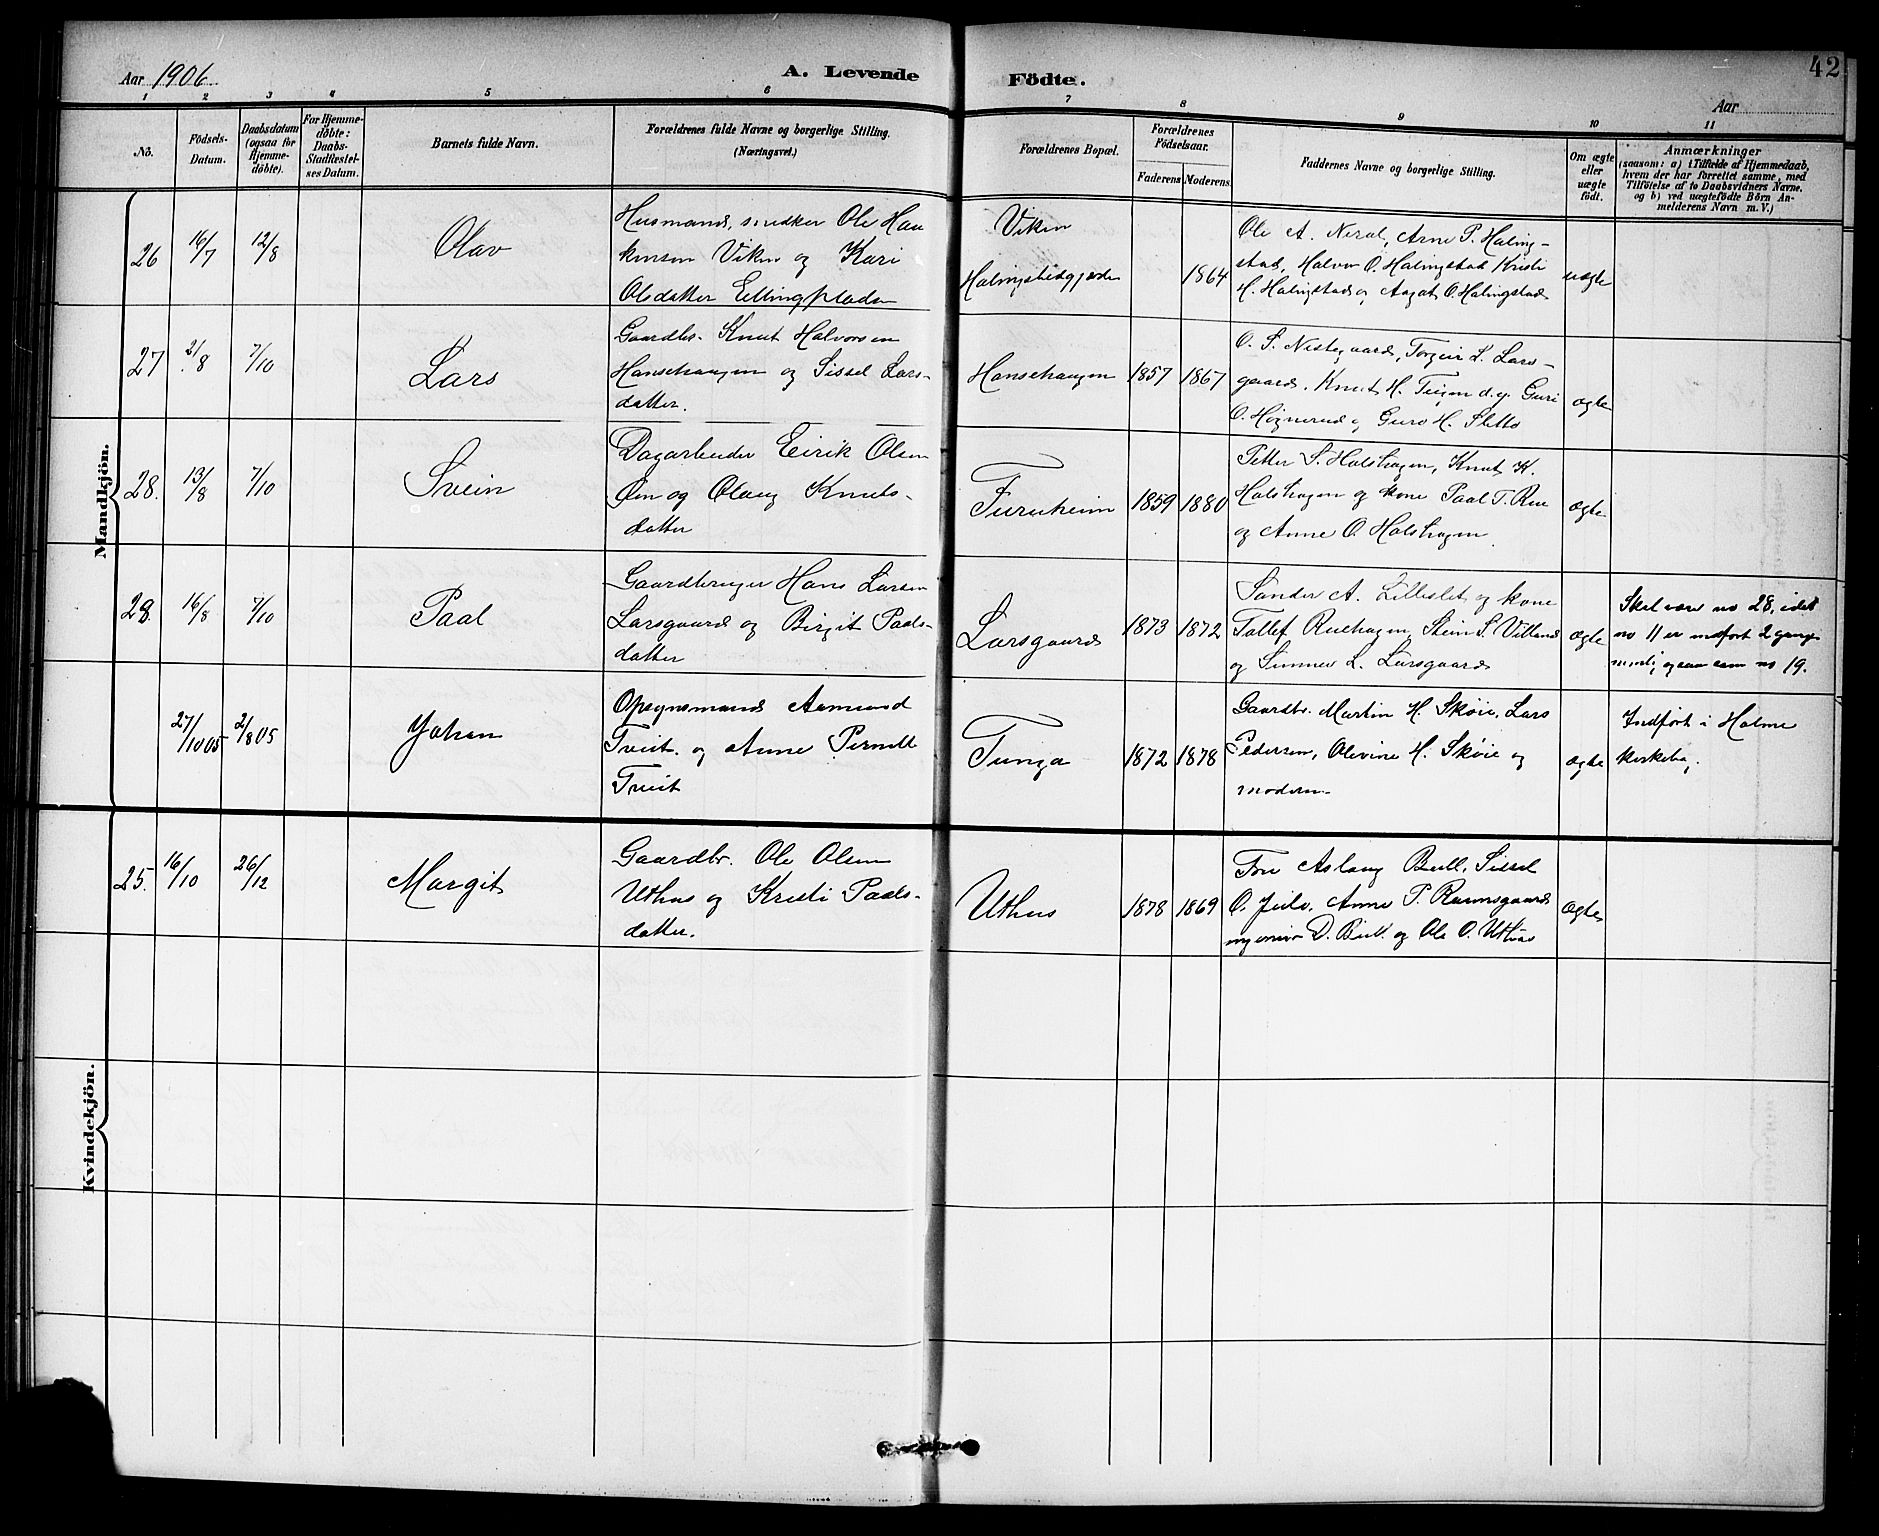 42
Aar 1906
A. Levende Födte.
Aar
1 2 3 4 5 6 7 8 9 10 11
No.
Födsels-
Datum.
Daabsdatum
(ogsaa for
Hjemme-
döbte).
For Hjemme-
döbte:
Daabs-
Stadfæstel-
ses Datum.
Barnets fulde Navn.
Forældrenes fulde Navne og borgerlige Stilling.
(Næringsvei.)
Forældrenes Bopæl.
Forældrenes
Födselsaar.
Faderens
Moderens
Faddernes Navne og borgerlige Stilling.
Om ægte
eller
uægte
födt.
Anmærkninger
(saasom: a) i Tilfælde af Hjemmedaab,
hvem der har forrettet samme, med
Tilföielse af to Daabsvidners Navne.
og b) ved uægtefödte Börn An-
melderens Navn m. V.)
Mandkjön.
26
16/7
12/8
Olav
Husmand, snedker Ole Hau
kensen Viken og Kari
Olsdatter
Viken
1864
Ole A. Neral, Arne P. Haling-
stad, Halvor O. Halingstad Kristi
H. Halingstad og Aagot O. Halingstad
uægte
27
2/8
7/10
Lars
Gaardbr. Knut Halvorsen
Hansehaugen og Sissel Lars-
datter.
Hansehaugen
1857
1867
O. S. Nestegaard, Torgeir L. Lars-
gaard, Knut H. Teigen d.y. Guri
O. Høgnerud og Guro H. Sletto
ægte
28.
13/8
7/10
Svein
Dagarbeider Eirik Olsen
Øen og Olaug Knuts-
datter
Furuheim
1859
1880
Petter S. Halshagen, Knut K.
Halshagen og kone Paal T. Rue
og Anne O. Halshagen
ægte
28.
16/8
7/10
Paal
Gaardbruger Hans Larsen
Larsgaard og Birgit Paals-
datter
Larsgaard
1873
1872
Sander A. Lilleslet og kone
Tollef Ruehagen, Stein S. Villand
og Sunnev L. Larsgaard
ægte
Skal være no 28, idet
no 11 er indført 2 gange
ogsaa som no 19.
27/10 05
2/8 05
Johan
Opsynsmand Aamund
Tveit. og Anne Pernill
Tveit
Tunga
1872
1878
Gaardbr. Martin H. Skøie, Lars
Pedersen, Olivine H. Skøie og
moderen
ægte
Indført i Holme
kirkebog.
Kvindekjön.
25.
16/10
26/12
Margit
Gaardbr. Ole Olsen
Uthus og Kristi Paals-
datter.
Uthus
1878
1869
Fru Aslaug Bull, Sissel
O. Anne P.
D. Bull og Ole O. Uthus
ægte